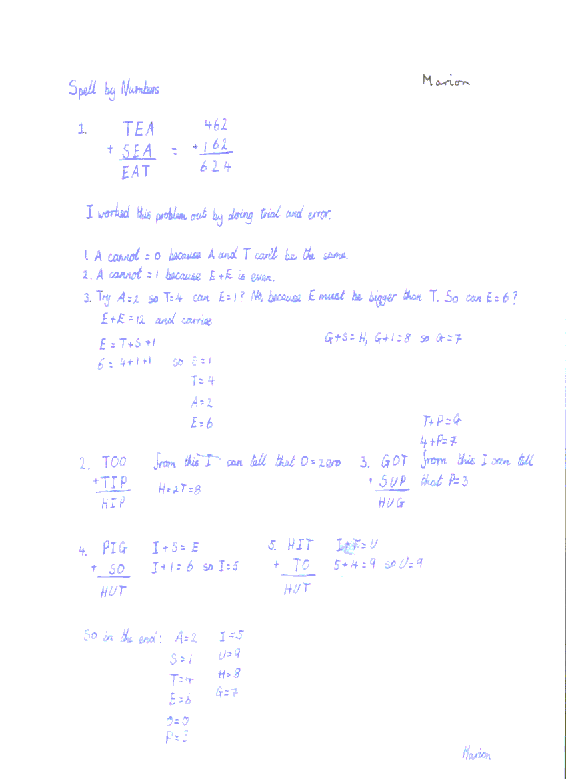 Marion
Spell by Numbers
1. TEA 462
+ SEA = + 162
EAT 624
I worked this problem out by doing trial and error.
1. A cannot = 0 because A and T can't be the same.
2. A cannot = 1 because E+E is even.
3. Try A=2 so T=4 can E=1? No, because E must be bigger than T. So can E=6?
E+E=12 and carries
E = T+S+1 G+S=H, G+1=8 so G=7
6 = 4+1+1 so S=1
T=4
A=2
E=6
T+P=G
4+P=7
2. TOO from this I can tell that O=zero 3. GOT from this I can tell
+TIP H=2T=8 + SUP that P=3
HIP HUG
4. PIG I+S=E 5. HIT I+T=U
+ SO I+1=6 so I=5 + TO 5+4=9 so U=9
HUT HUT
So in the end: A=2 I=5
S=1 U=9
T=4 H=8
E=6 G=7
O=0
P=3
Marion